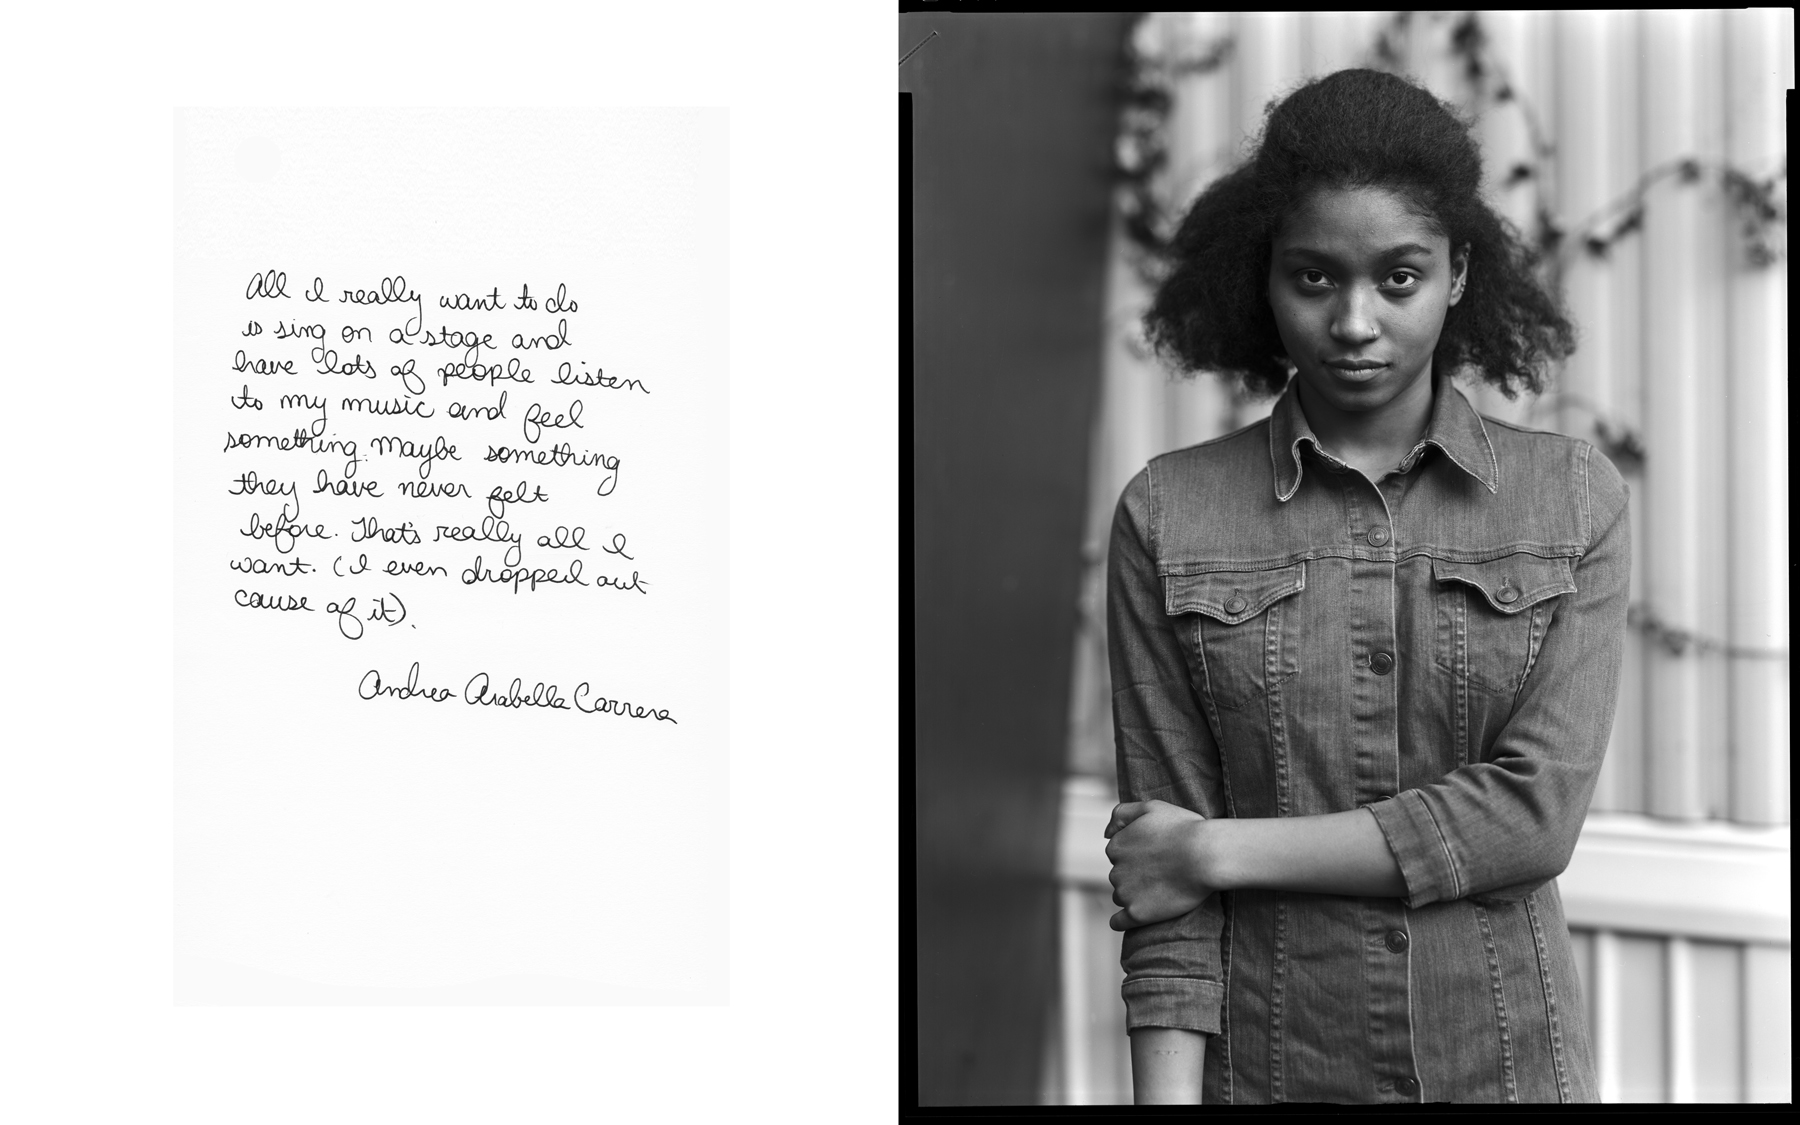 All I really want to do
is sing on a stage and
have lots of people listen
to my music and feel
something. Maybe something
they have never felt
before. That's really all I
want. (I even dropped out
cause of it).
Andrea Arabella Carrera